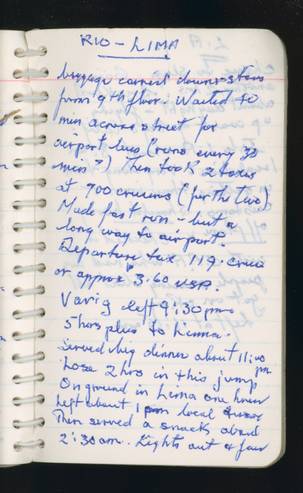 RIO - LIMA
luggage carried down-stairs
from 9th floor. Waited 40
min across street for
airport bus (runs every 30
min?) Then took 2 taxis
at 700 cruceros (for the two)
Made fast run - but a
long way to airport.
Departure tax 119. cruce
or approx 3.60 USA.
Varig left 9:30 pm
5 hrs plus to Lima.
Served big dinner about 11:00 pm
Lose 2 hrs in this jump
On ground in Lima one hour
Left about 1 pm local
Then served a snacks about
2:30 am. Lights out & few